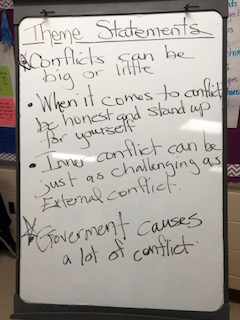 Theme Statements
Conflicts can be
big or little
• When it comes to conflict
be honest and stand up
for yourself
• Inner conflict can be
just as challenging as
External conflict.
Goverment causes
a lot of conflict.